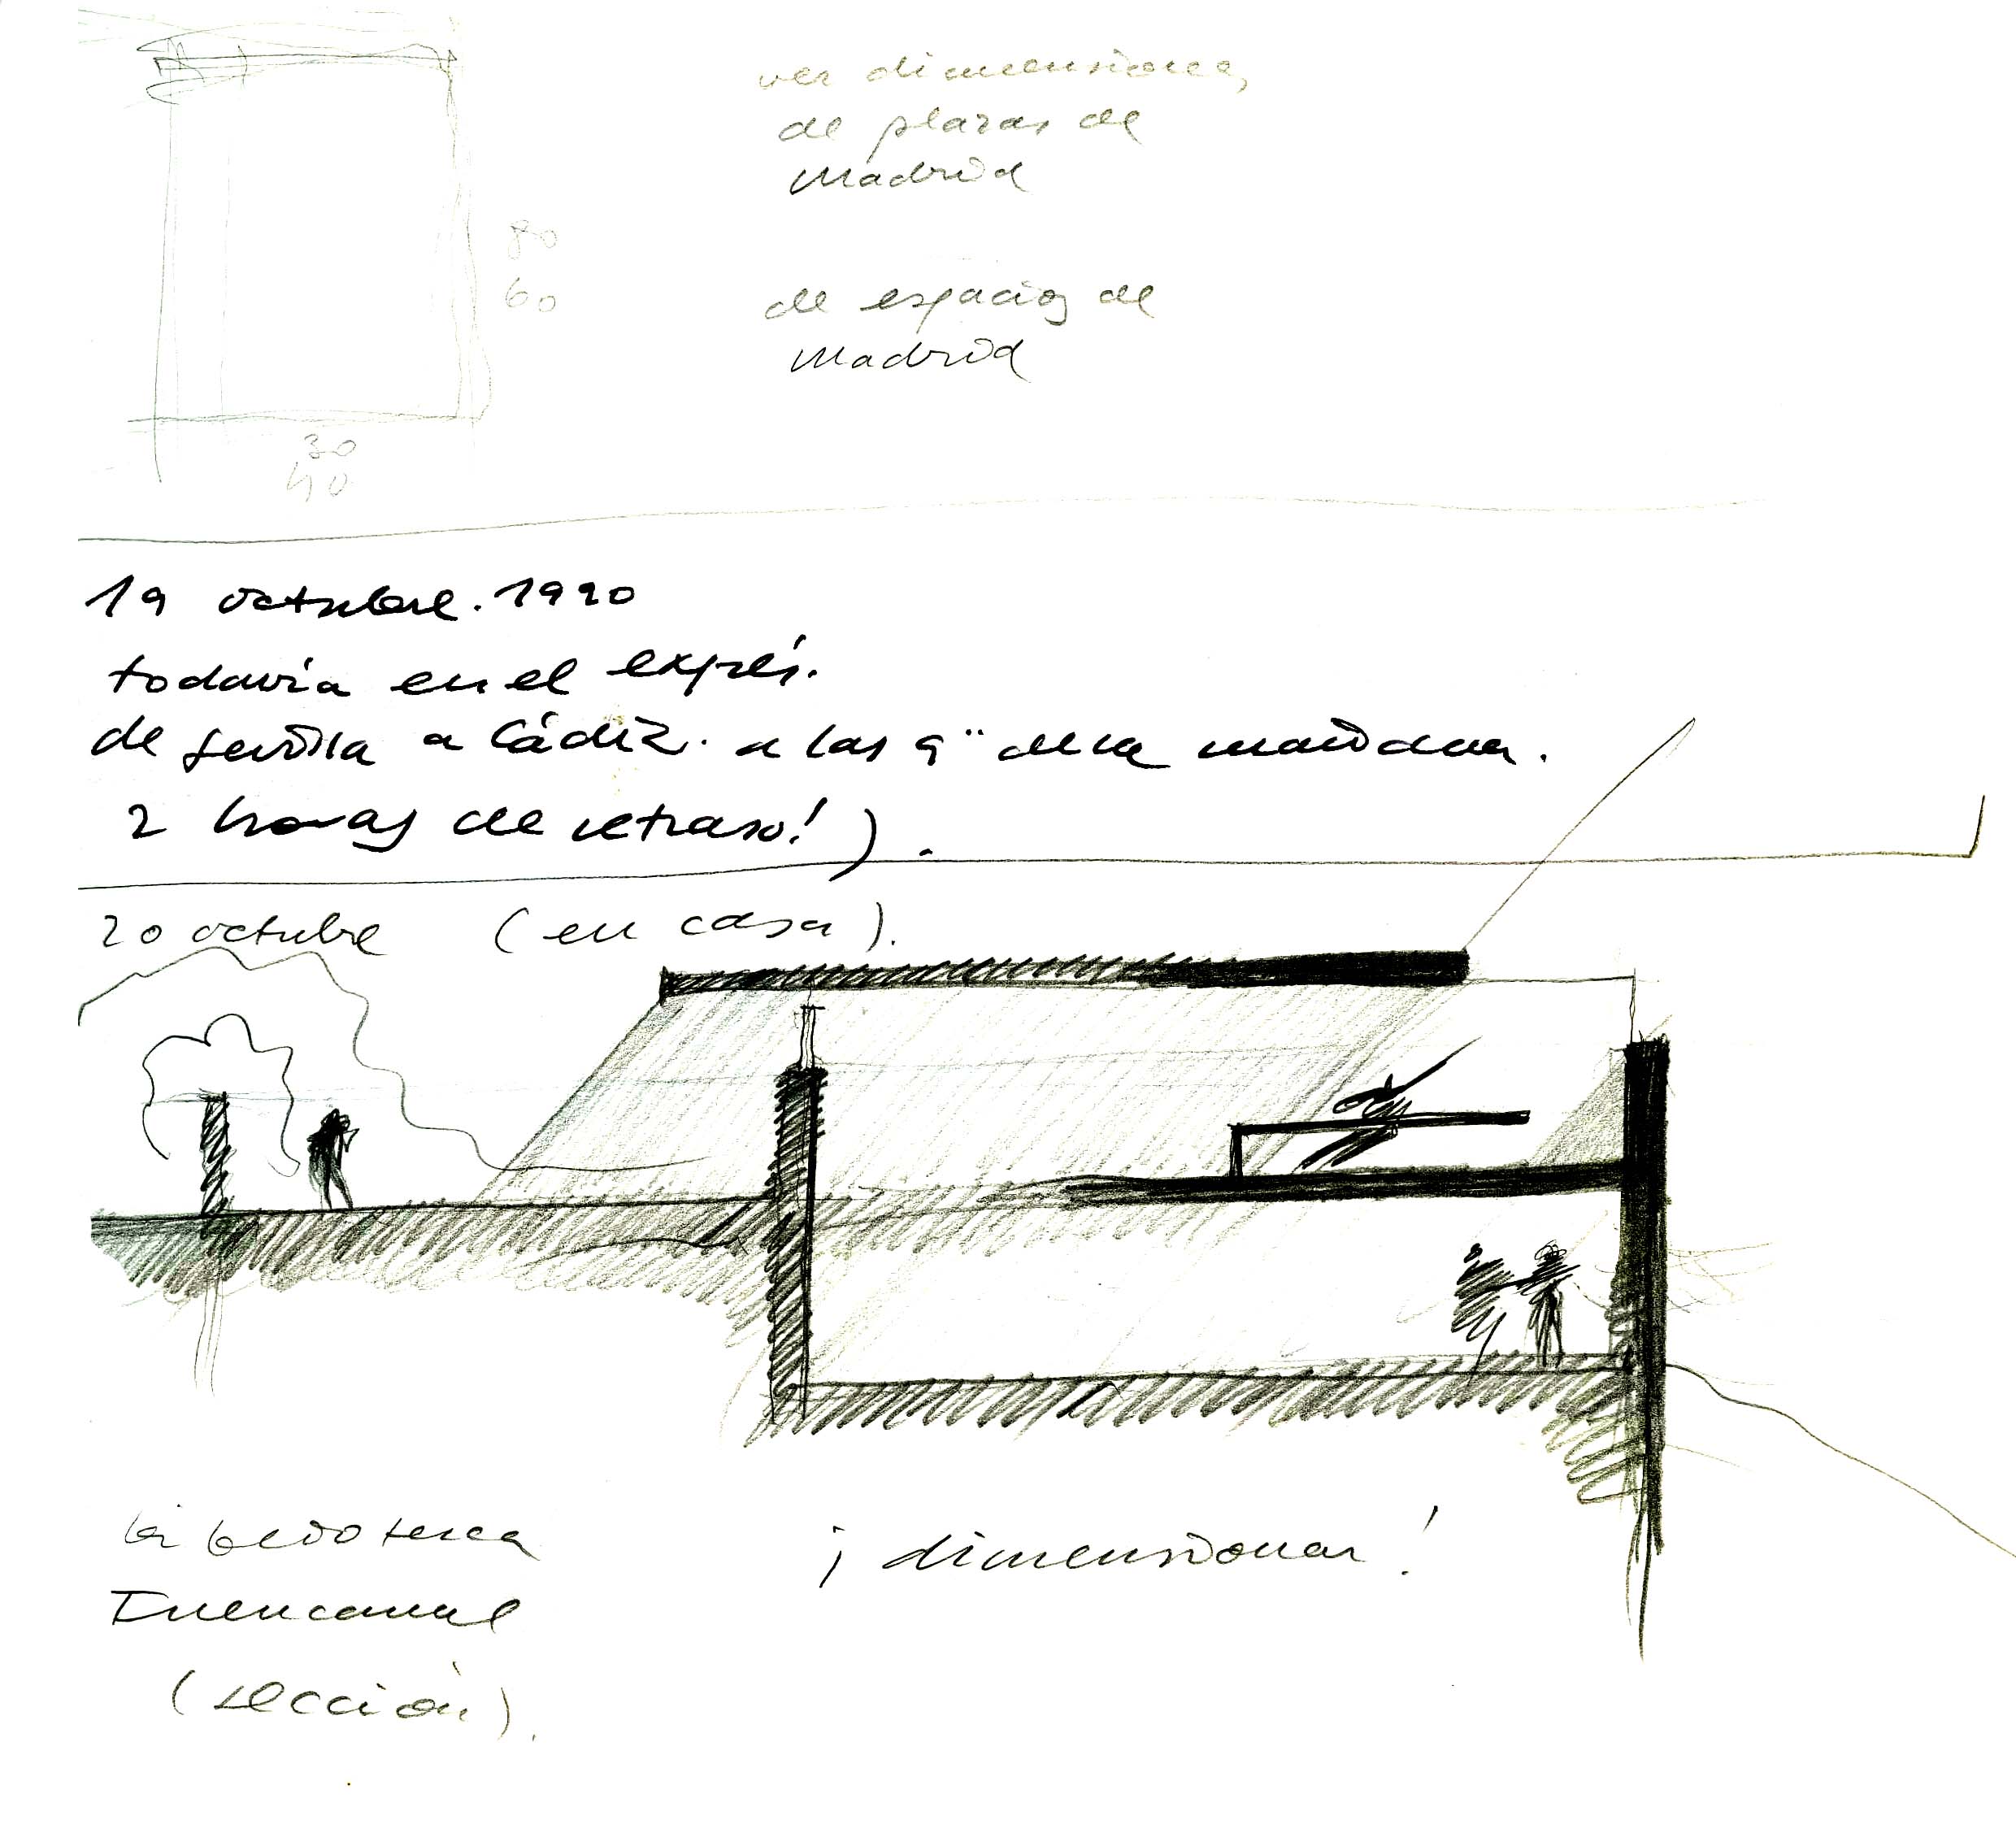 ver dimensiones
de plazas de
Madrid
80
60
de espacios de
Madrid
30
40
19 octubre. 1990
todavía en el exprés.
de Sevilla a Cádiz. a las 9 de la mañana.
2 horas de retraso!).
20 octubre (en casa).
biblioteca
Tuencarral
(sección).
¡dimensionar!